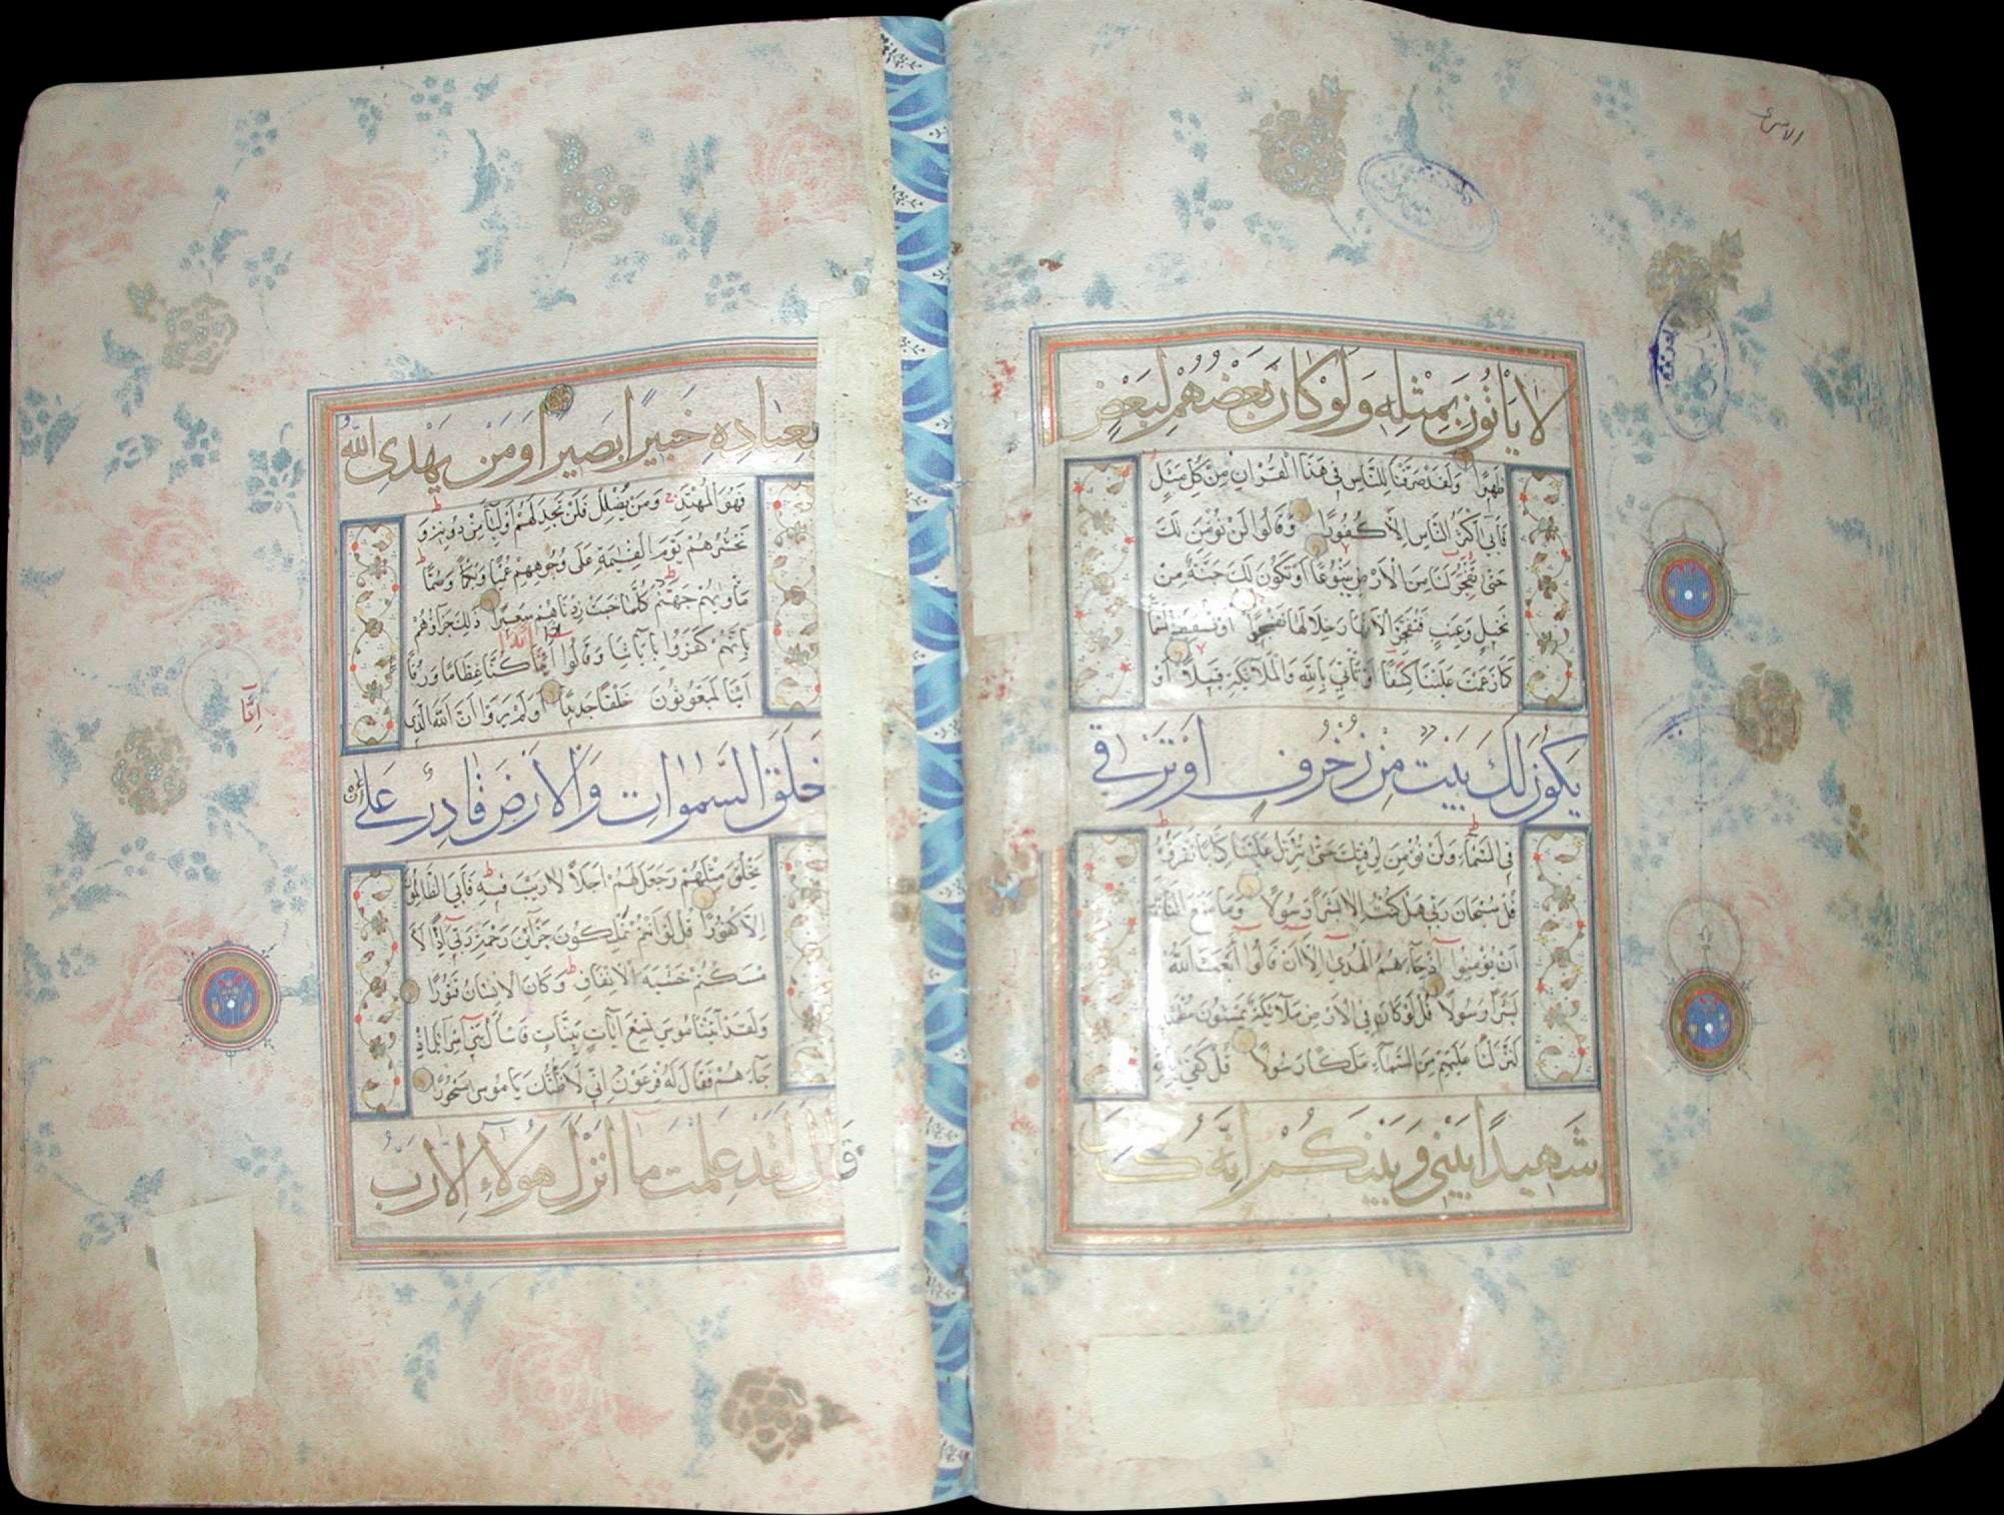 الاسرى
لا يَاْتُونَ بِمِثْلِهِ وَلَوْ كَانَ بَعْضُهُمْ لِبَعْضٍ
ظَهِيرًا وَلَقَدْ صَرَّفْنَا لِلنَّاسِ فِي هَذَا الْقُرْانِ مِنْ كُلِّ مَثَلٍ
فَاَبَى اَكْثَرُ النَّاسِ اِلَّا كُفُورًا وَقَالُوا لَنْ نُؤْمِنَ لَكَ
حَتَّى تَفْجُرَ لَنَا مِنَ الْاَرْضِ يَنْبُوعًا اَوْ تَكُونَ لَكَ جَنَّةٌ مِنْ
نَخِيلٍ وَعِنَبٍ فَتُفَجِّرَ الْاَنْهَارَ خِلَالَهَا تَفْجِيرًا اَوْ تُسْقِطَ السَّمَآءَ
كَمَا زَعَمْتَ عَلَيْنَا كِسَفًا اَوْ تَأْتِيَ بِاللَّهِ وَالْمَلَآئِكَةِ قَبِيلًا اَوْ
يَكُونَ لَكَ بَيْتٌ مِنْ زُخْرُفٍ اَوْ تَرْقٰى
فِي السَّمَآءِ وَلَنْ نُؤْمِنَ لِرُقِيِّكَ حَتَّى تُنَزِّلَ عَلَيْنَا كِتَابًا نَقْرَؤُهُ
قُلْ سُبْحَانَ رَبِّي هَلْ كُنْتُ اِلَّا بَشَرًا رَسُولًا وَمَا مَنَعَ النَّاسَ
اَنْ يُؤْمِنُوا اِذْ جَآءَهُمُ الْهُدَى اِلَّا اَنْ قَالُوا اَبَعَثَ اللَّهُ
بَشَرًا رَسُولًا قُلْ لَوْ كَانَ فِي الْاَرْضِ مَلَآئِكَةٌ يَمْشُونَ مُطْمَئِنِّينَ
لَنَزَّلْنَا عَلَيْهِمْ مِنَ السَّمَآءِ مَلَكًا رَسُولًا قُلْ كَفَى بِاللَّهِ
شَهِيدًا بَيْنِي وَبَيْنَكُمْ اِنَّهُ كَانَ
بِعِبَادِهِ خَبِيرًا بَصِيرًا وَمَنْ يَهْدِي اللَّهُ
فَهُوَ الْمُهْتَدِ وَمَنْ يُضْلِلْ فَلَنْ تَجِدَ لَهُمْ اَوْلِيَآءَ مِنْ دُونِهِ وَ
نَحْشُرُهُمْ يَوْمَ الْقِيٰمَةِ عَلَى وُجُوهِهِمْ عُمْيًا وَبُكْمًا وَصُمًّا
مَأْوٰيهُمْ جَهَنَّمُ كُلَّمَا خَبَتْ زِدْنَاهُمْ سَعِيرًا ذَلِكَ جَزَآؤُهُمْ
بِاَنَّهُمْ كَفَرُوا بِاٰيَاتِنَا وَقَالُوا ءَاِذَا كُنَّا عِظَامًا وَرُفَاتًا
اَئِنَّا لَمَبْعُوثُونَ خَلْقًا جَدِيدًا اَوَلَمْ يَرَوْا اَنَّ اللَّهَ الَّذِي
اِنَّا
خَلَقَ السَّمٰوَاتِ وَالْاَرْضَ قَادِرٌ عَلَى اَنْ
يَخْلُقَ مِثْلَهُمْ وَجَعَلَ لَهُمْ اَجَلًا لَا رَيْبَ فِيهِ فَاَبَى الظَّالِمُونَ
اِلَّا كُفُورًا قُلْ لَوْ اَنْتُمْ تَمْلِكُونَ خَزَآئِنَ رَحْمَةِ رَبِّي اِذًا لَاَ
مْسَكْتُمْ خَشْيَةَ الْاِنْفَاقِ وَكَانَ الْاِنْسَانُ قَتُورًا
وَلَقَدْ اٰتَيْنَا مُوسَى تِسْعَ اٰيَاتٍ بَيِّنَاتٍ فَاسْأَلْ بَنِي اِسْرَآئِيلَ اِذْ
جَآءَهُمْ فَقَالَ لَهُ فِرْعَوْنُ اِنِّي لَاَظُنُّكَ يَا مُوسَى مَسْحُورًا
قَالَ لَقَدْ عَلِمْتَ مَا اَنْزَلَ هٰؤُلَآءِ اِلَّا رَبُّ